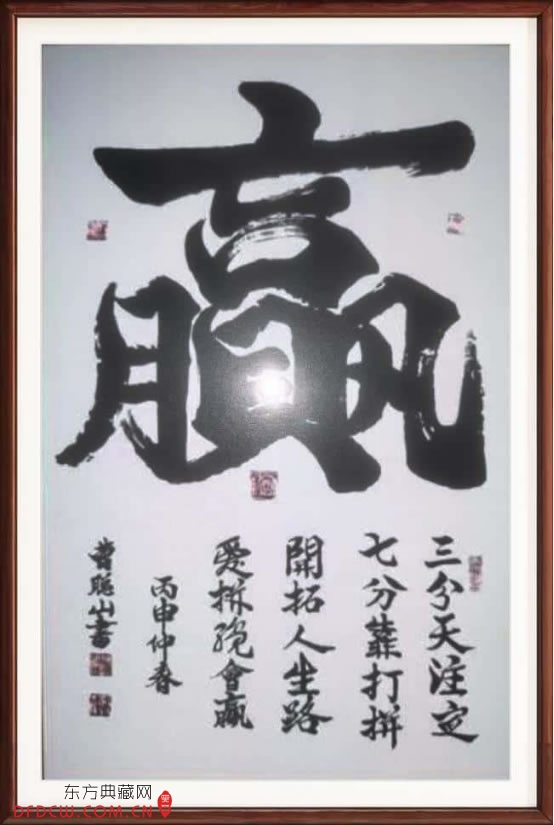 贏
三分天注定
七分靠打拼
開拓人生路
愛拼纔會贏
丙申仲春
曹聪山書
东方典藏网
DFDCW.COM.CN